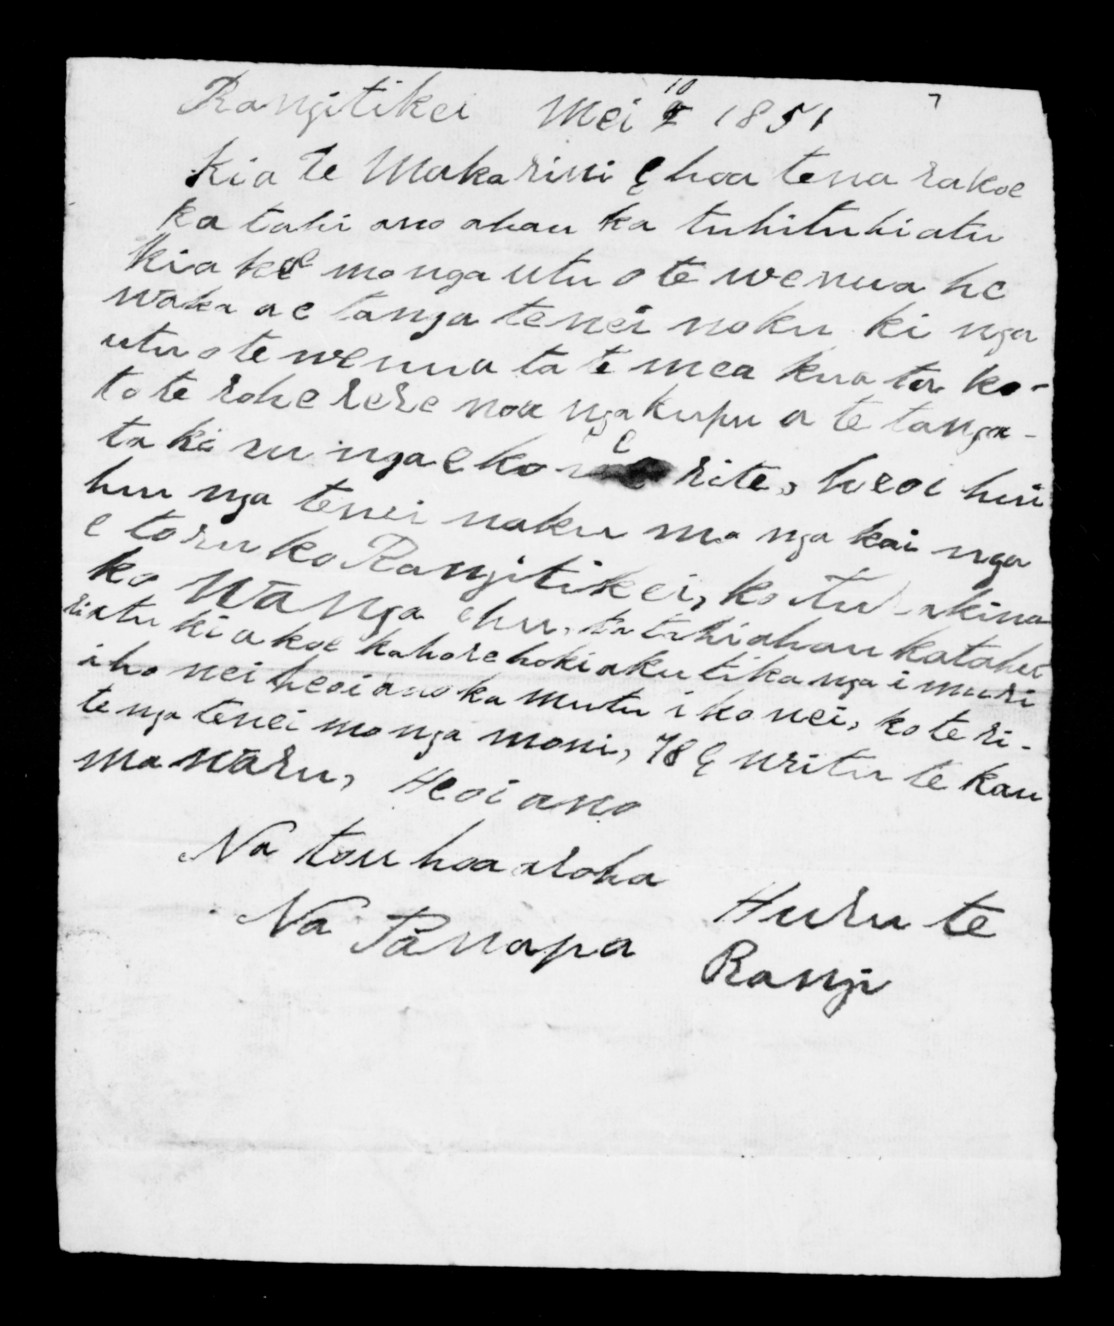 7
Rangitikei Mei 10 1851
Kia te Makarini E hoa tena rakoe
ka tahi ano ahau ka tuhituhi atu
kia koe mo nga utu o te wenua he
waka ae tanga tenei noku ki nga
utu o te wenua ta te mea kua ta ko-
to te rohe rere noa nga kupu a te tanga-
ta ki runga e kore e rite, heoi huri
huu nga tenei naku mo nga kai nga
e toru ko Rangitikei, ko Turakina
ko Wanga ehu, ta tuhi ahau katahi
riatu ki a koe kahore hoki aku tikanga i muri
iho nei heoi ano ka mutu i ko nei, ko te ri-
tenga tenei mo nga moni, 78 E writu te kau
ma waru, Heoi ano
Na tou hoa aroha
Na Panapa
Huru te
Rangi